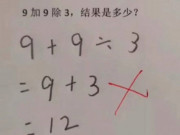 9 加 9 除 3，结果是多少？
9 + 9 ÷ 3
= 9 + 3
= 12